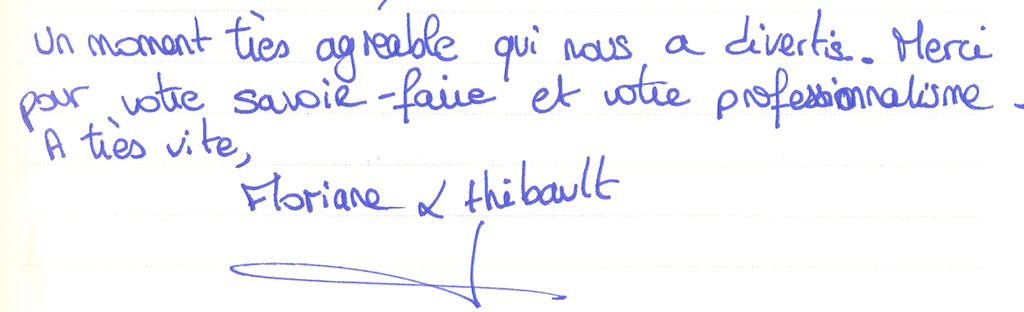 Un moment très agréable qui nous a divertis. Merci
pour votre savoir-faire et votre professionnalisme.
A très vite,
Floriane & Thibault